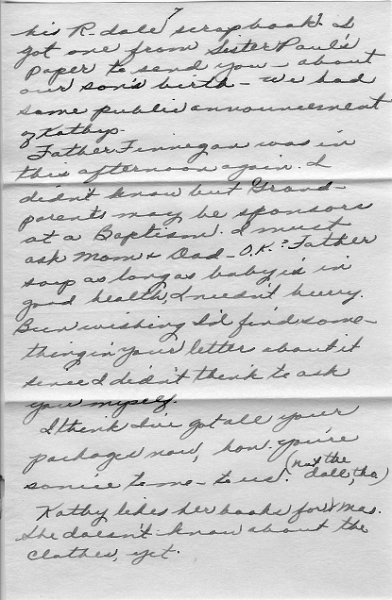 7
his R-dale scrapbook? I
got one from Sister Paul's
paper to send you - about
our son's birth - we had
same public announcement
of Kathy.
Father Finnegan was in
this afternoon again. I
didn't know but Grand-
parents may be sponsors
at a Baptism. I must
ask Mom & Dad - O.K.? Father
says as long as baby is in
good health, I needn't hurry.
Been wishing I'd find some-
thing in your letter about it
since I didn't think to ask
you myself.
I think I've got all your
packages now, hon. You're
so nice to me - to us. (not the
doll, tho)
Kathy likes her books for Xmas.
She doesn't know about the
clothes, yet.